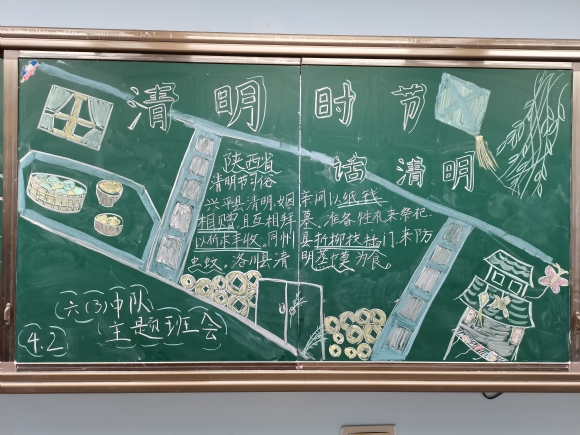 清明时节
话清明
陕西省
清明节习俗
兴平县清明,姻亲间以纸钱
相赠,且互相拜墓。准备牲礼来祭祀,
以祈求丰收。同州县折柳枝插门来防
虫蚊。洛川县清明蒸馍为食。
六(3)中队
主题班会
4.2